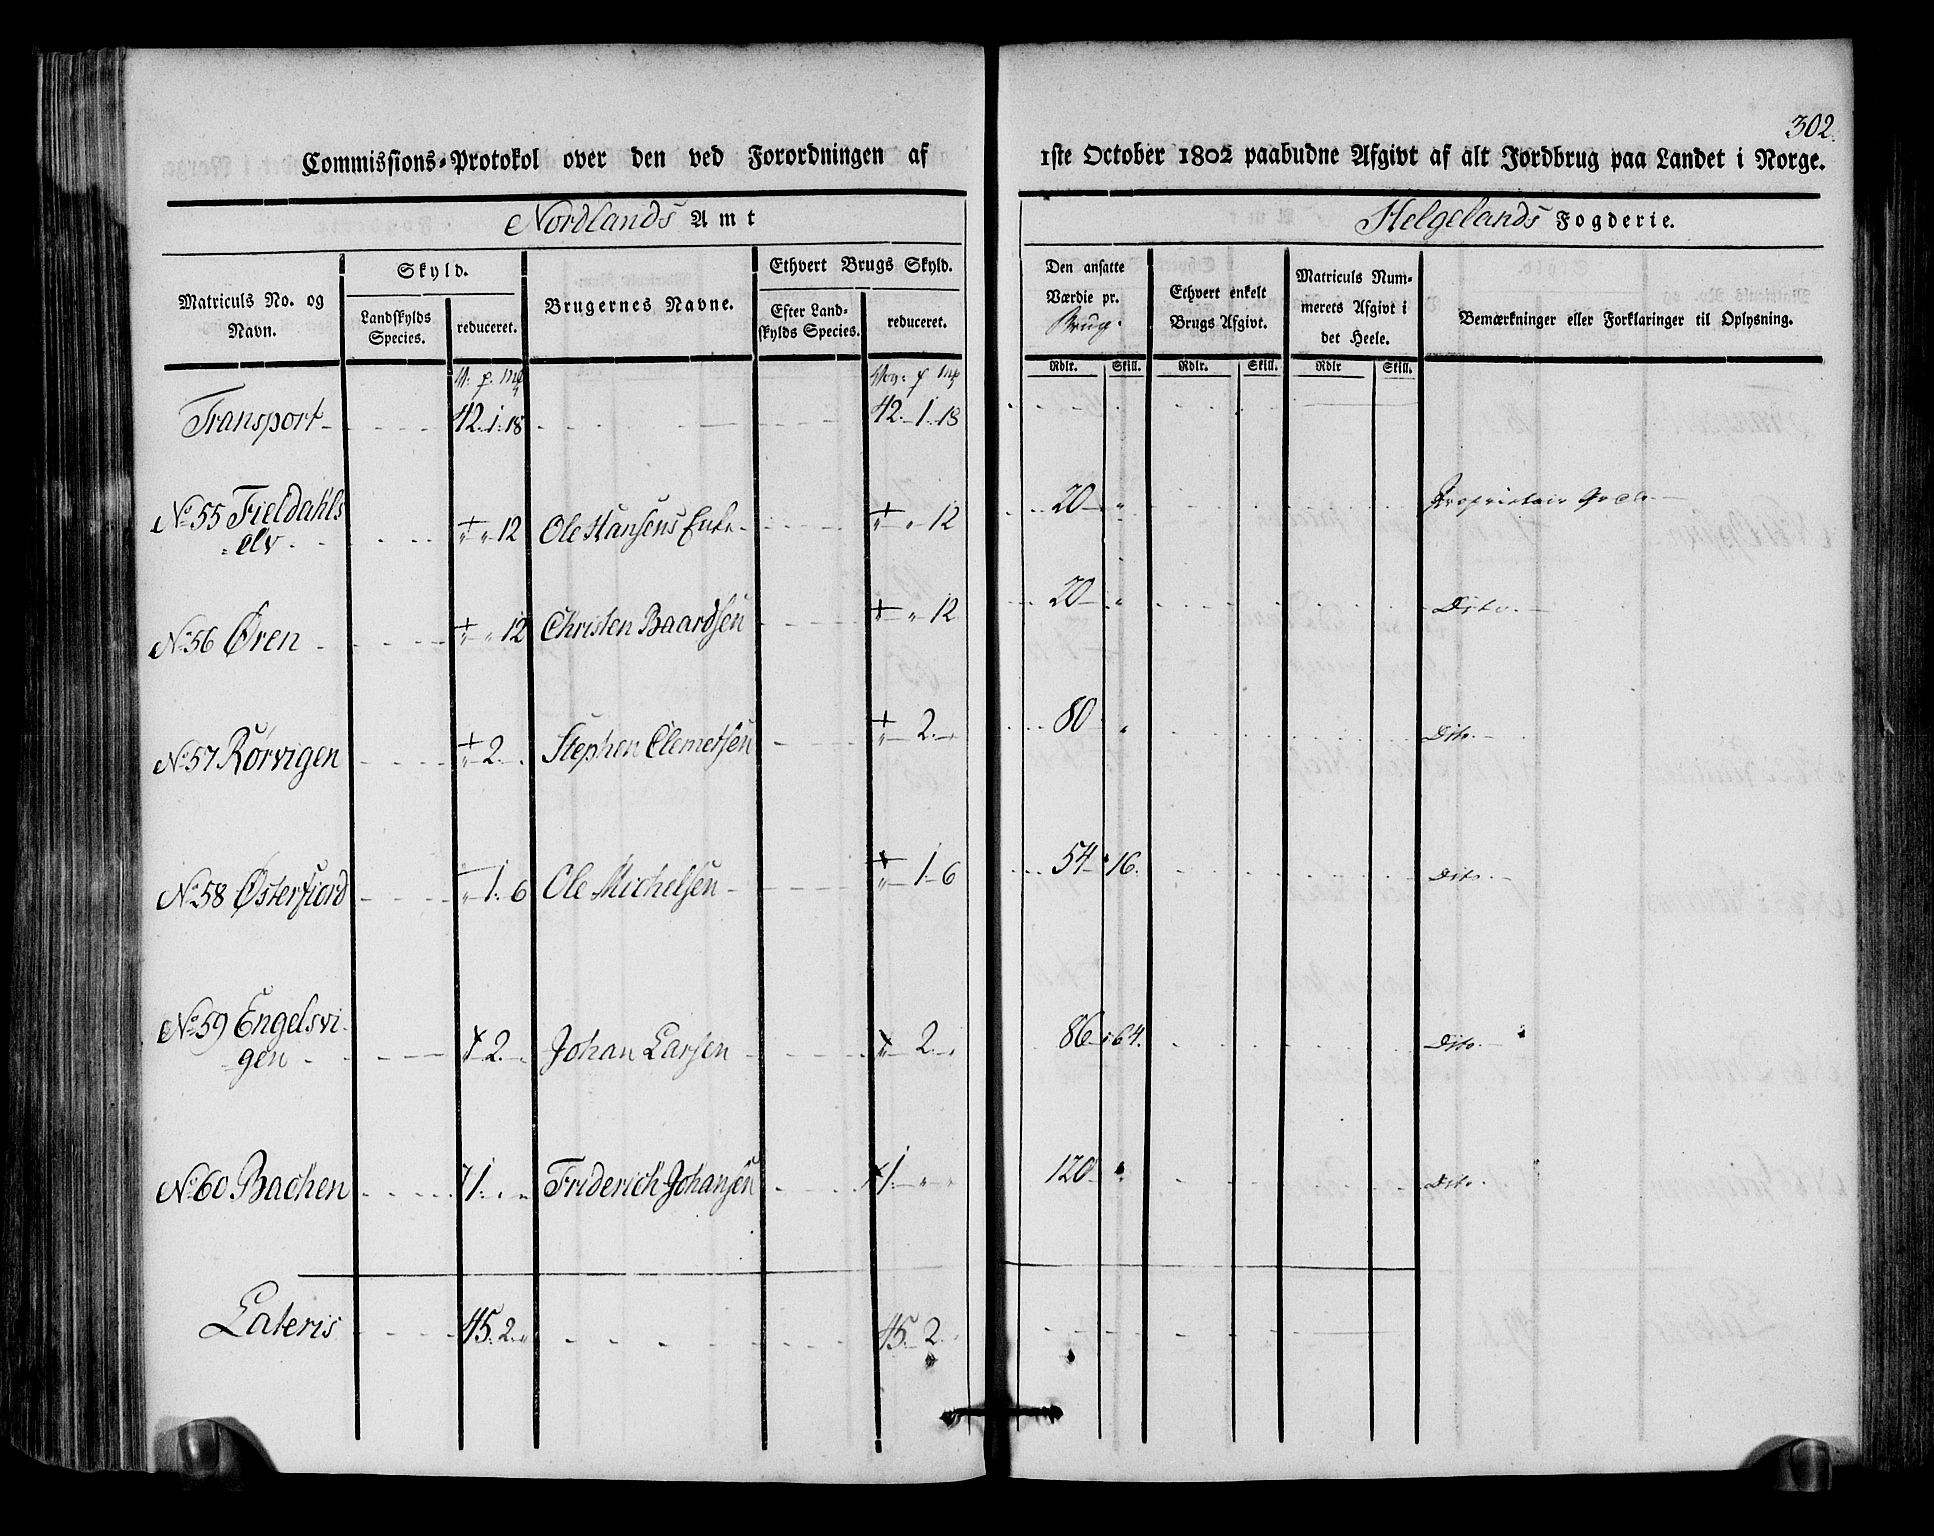 302.
Commissions-Protokol over den ved Forordningen af 1ste October 1802 paabudne Afgivt af alt Jordbrug paa Landet i Norge.
Nordlands Amt Helgelands Fogderie.
Matriculs No. og Navn. Skyld. Landskylds Species. reduceret. Brugernes Navne. Ethvert Brugs Skyld. Efter Landskylds Species. reduceret. Den ansatte Værdie pr. Brug. Ethvert enkelt Brugs Afgivt. Matriculs Nummerets Afgivt i det Heele. Bemærkninger eller Forklaringer til Oplysning.
Rdlr. Skill. Rdlr. Skill. Rdlr Skill.
Transport 42. 1. 18 42. 1. 18
No 55 Fieldahls
elv 12 Ole Hansens Enke 12 20 " Proprietair
No 56 Øren 12 Christen Baardsen 12 20 " Dito.
No 57 Rørvigen 2. Stephen Clemetsen 2. 80 " Dito.
No 58 Østerfiord 1. 6 Ole Michelsen 1. 6 54 16. Dito.
No 59 Engelsvi-
gen 2. Johan Larsen 2. 86 64. Dito.
No 60 Bachen 1. Friderich Johansen 1. 120 " Dito.
Lateris 45. 2. 45. 2.